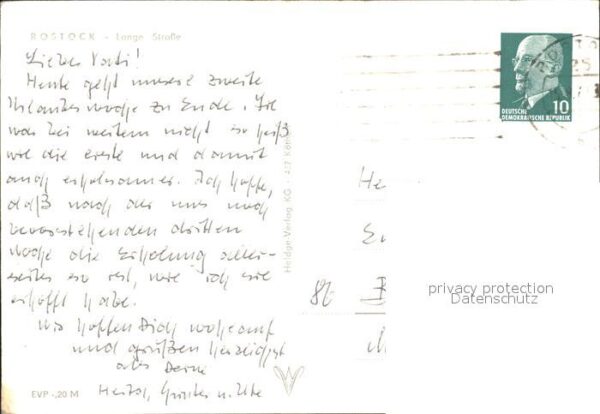 ROSTOCK - Lange Straße
Lieber Vati!
Heute geht unsere zweite
Urlaubswoche zu Ende. Sie
war bei weitem nicht so heiß
wie die erste und damit
auch erholsamer. Ich hoffe,
daß nach der uns noch
bevorstehenden dritten
Woche die Erholung aller-
seites so ist, wie ich sie
erhofft habe.
Wir hoffen Dich wohlauf
und grüßen herzlichst
als Deine
EVP -,20 M
u. Ute
Heldge-Verlag KG
DEUTSCHE
DEMOKRATISCHE REPUBLIK
10
25
privacy protection
Datenschutz